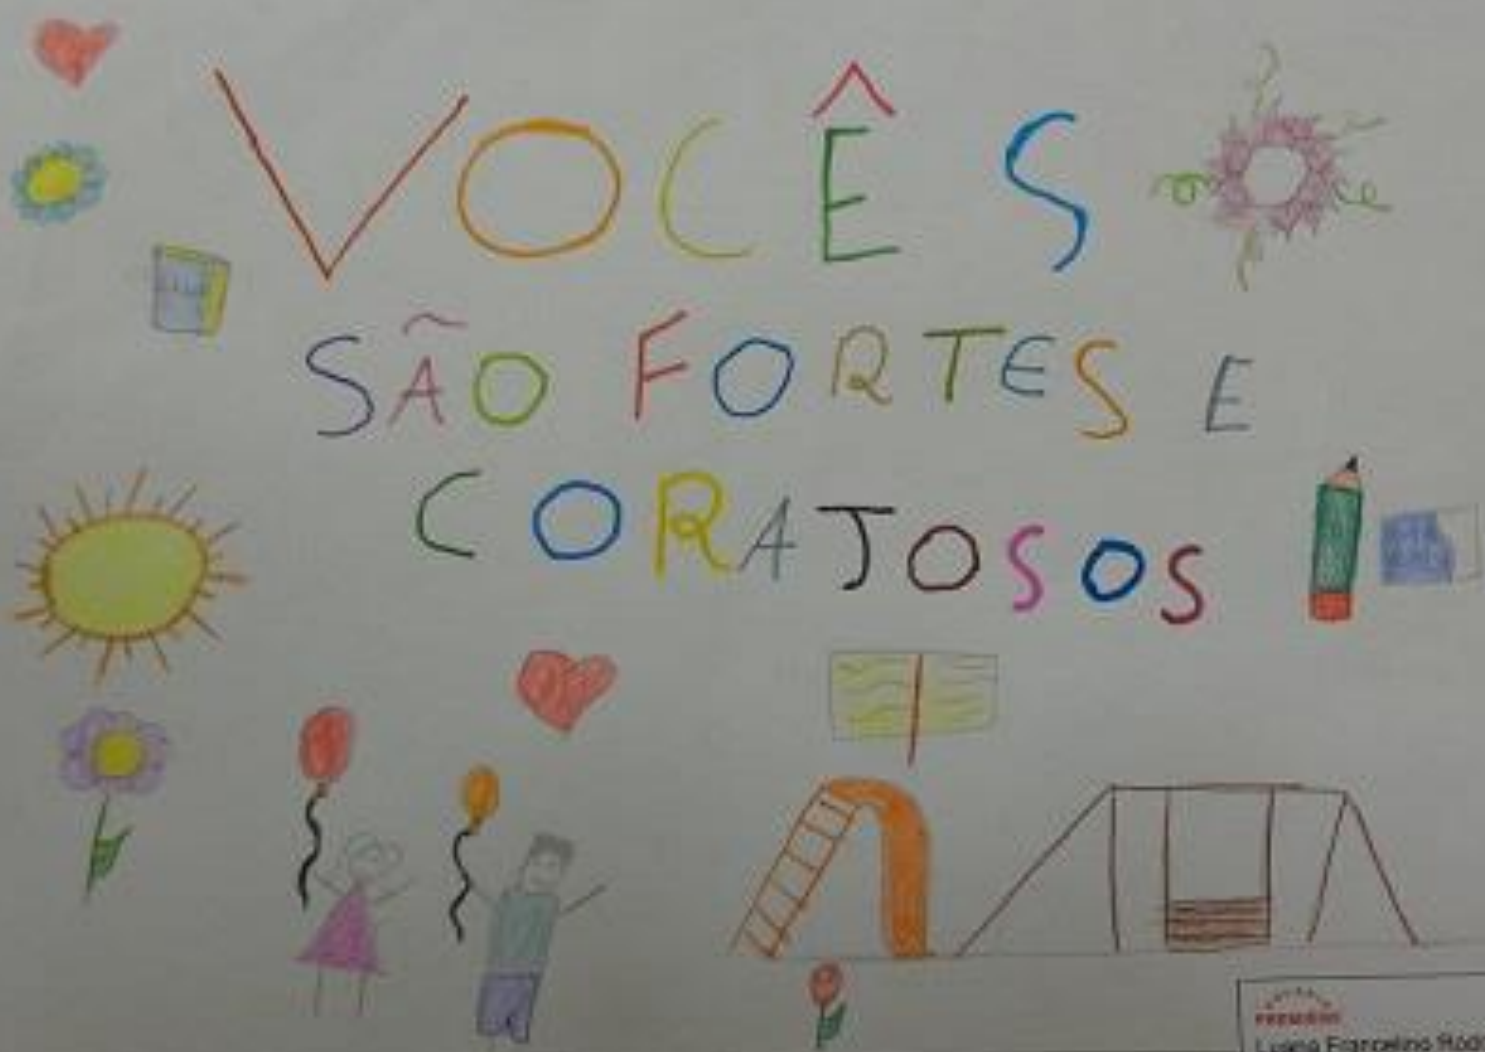 VOCÊS
SÃO FORTES E
CORAJOSOS
Luana Francelino